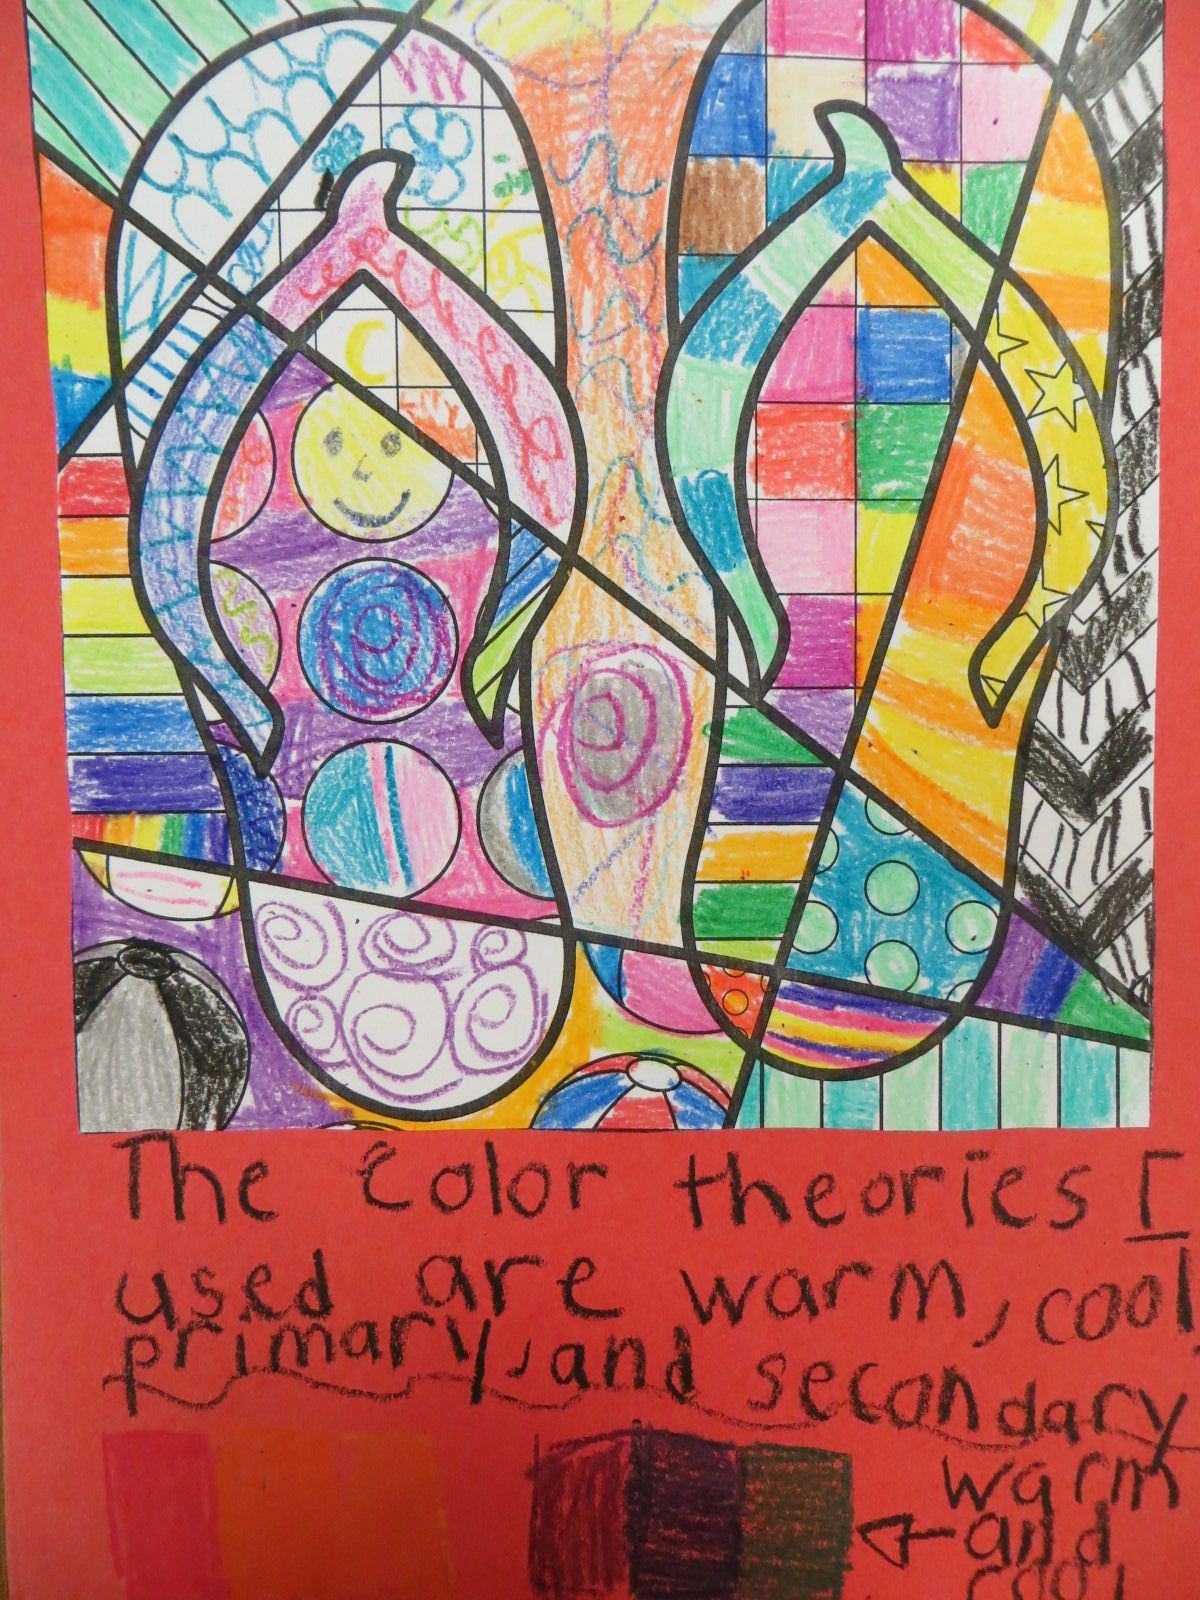 The color theories I
used are warm, cool,
primary, and secondary
warm
and
cool